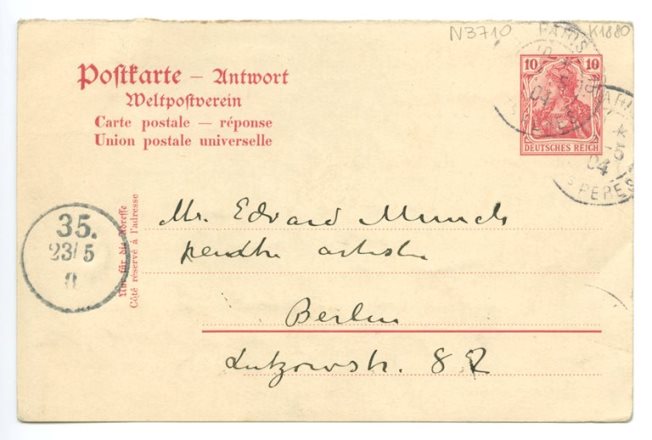 N3710
K1880
Postkarte – Antwort
Weltpostverein
Carte postale – réponse
Union postale universelle
10 10
DEUTSCHES REICH
PARIS
04
PERES
35.
23/5
Nur für die Adresse
Côté réservé à l'adresse
Mr. Edvard Munch
peintre artiste
Berlin
Lutzowstr. 82